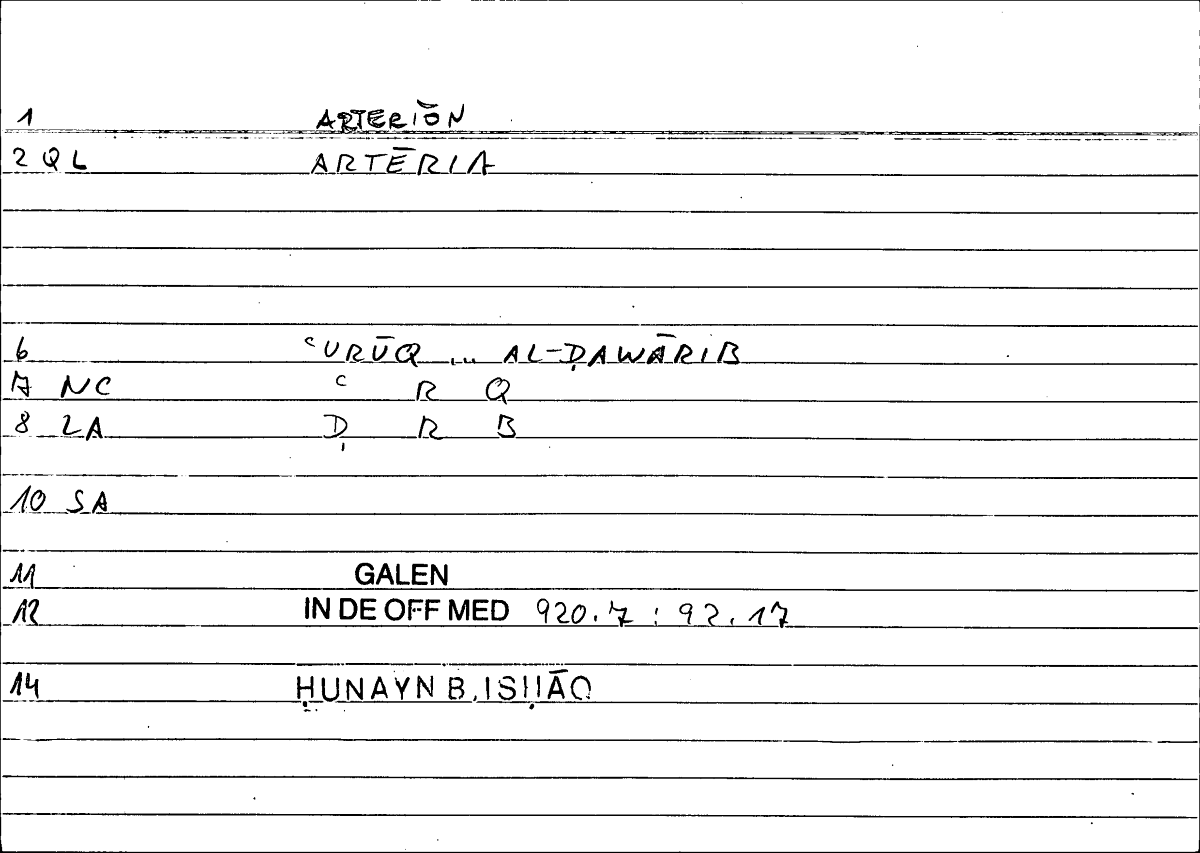 1 ARTERIŌN
2 QL ARTĒRIA
6 ʿURŪQ ... AL-ḌAWĀRIB
7 NC ʿ R Q
8 LA Ḍ R B
10 SA
11 GALEN
12 IN DE OFF MED 920.7 : 92.17
14 ḤUNAYN B. ISḤĀQ